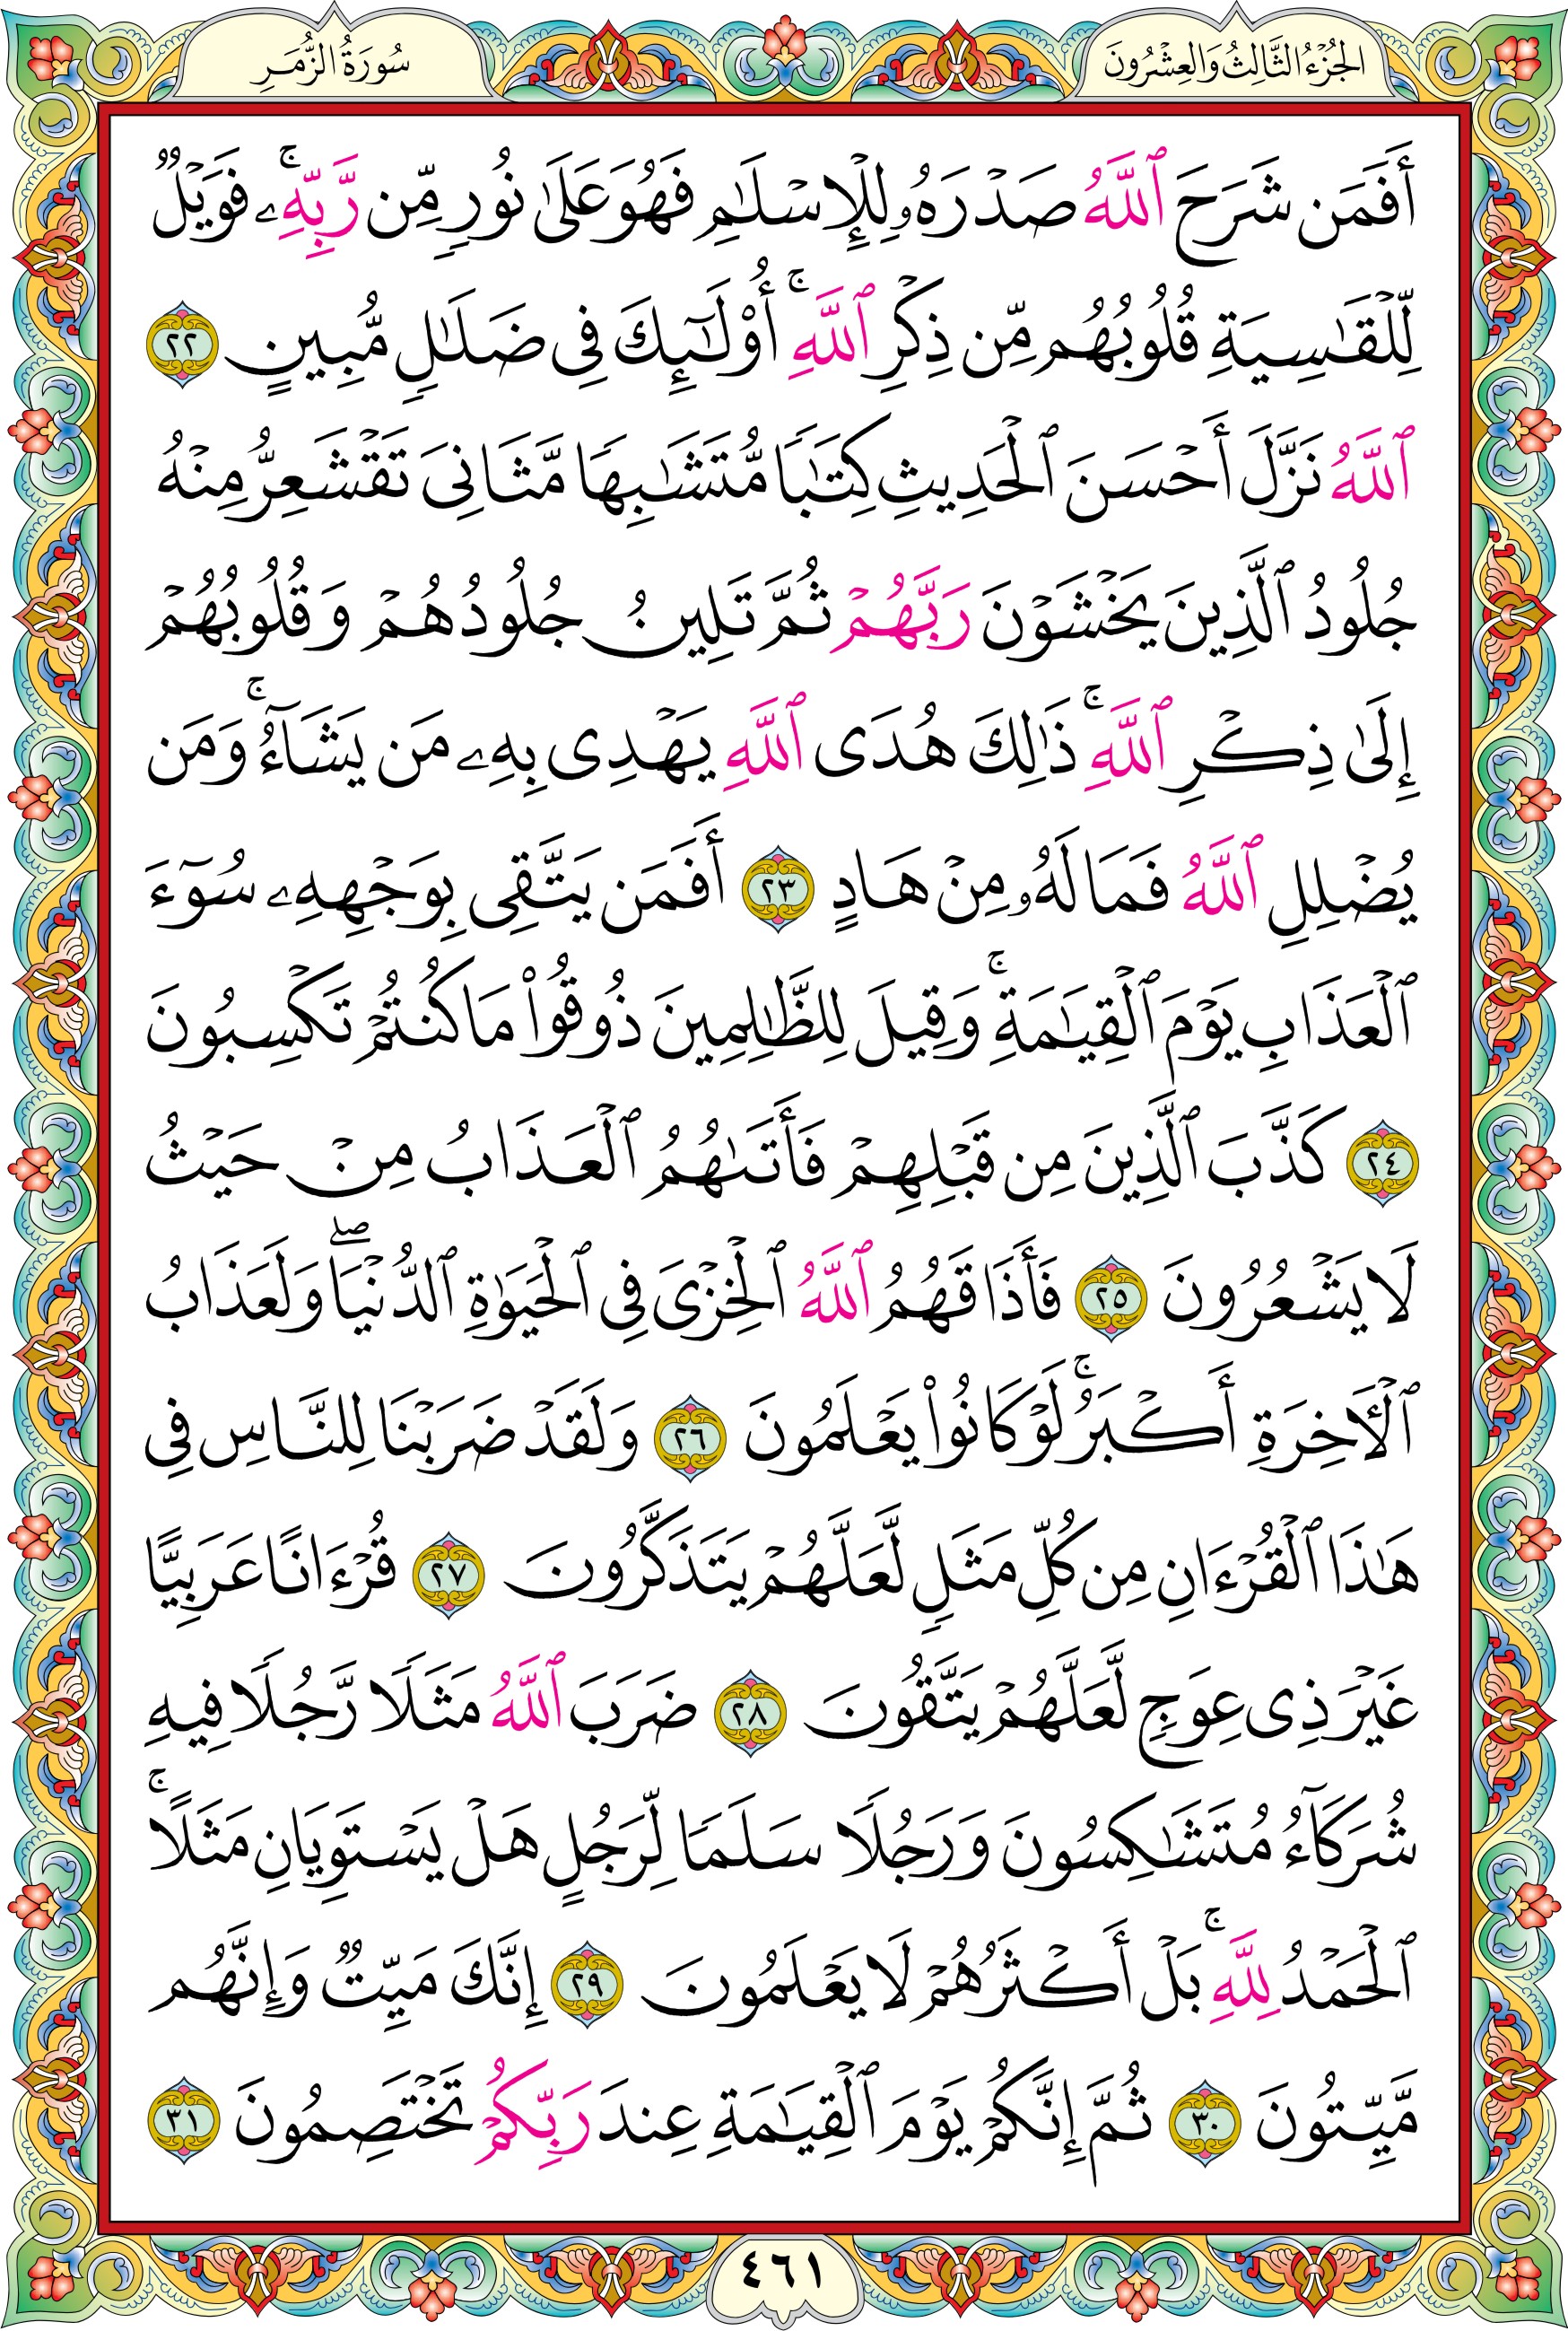 الجُزْءُ الثَّالِثُ وَالعِشْرُونَ
سُورَةُ الزُّمَرِ
أَفَمَن شَرَحَ ٱللَّهُ صَدْرَهُۥ لِلْإِسْلَٰمِ فَهُوَ عَلَىٰ نُورٍ مِّن رَّبِّهِۦ ۚ فَوَيْلٌ
لِّلْقَٰسِيَةِ قُلُوبُهُم مِّن ذِكْرِ ٱللَّهِ ۚ أُو۟لَٰٓئِكَ فِى ضَلَٰلٍ مُّبِينٍ ٢٢
ٱللَّهُ نَزَّلَ أَحْسَنَ ٱلْحَدِيثِ كِتَٰبًا مُّتَشَٰبِهًا مَّثَانِىَ تَقْشَعِرُّ مِنْهُ
جُلُودُ ٱلَّذِينَ يَخْشَوْنَ رَبَّهُمْ ثُمَّ تَلِينُ جُلُودُهُمْ وَقُلُوبُهُمْ
إِلَىٰ ذِكْرِ ٱللَّهِ ۚ ذَٰلِكَ هُدَى ٱللَّهِ يَهْدِى بِهِۦ مَن يَشَآءُ ۚ وَمَن
يُضْلِلِ ٱللَّهُ فَمَا لَهُۥ مِنْ هَادٍ ٢٣ أَفَمَن يَتَّقِى بِوَجْهِهِۦ سُوٓءَ
ٱلْعَذَابِ يَوْمَ ٱلْقِيَٰمَةِ ۚ وَقِيلَ لِلظَّٰلِمِينَ ذُوقُوا۟ مَا كُنتُمْ تَكْسِبُونَ
٢٤ كَذَّبَ ٱلَّذِينَ مِن قَبْلِهِمْ فَأَتَىٰهُمُ ٱلْعَذَابُ مِنْ حَيْثُ
لَا يَشْعُرُونَ ٢٥ فَأَذَاقَهُمُ ٱللَّهُ ٱلْخِزْىَ فِى ٱلْحَيَوٰةِ ٱلدُّنْيَا ۖ وَلَعَذَابُ
ٱلْءَاخِرَةِ أَكْبَرُ ۚ لَوْ كَانُوا۟ يَعْلَمُونَ ٢٦ وَلَقَدْ ضَرَبْنَا لِلنَّاسِ فِى
هَٰذَا ٱلْقُرْءَانِ مِن كُلِّ مَثَلٍ لَّعَلَّهُمْ يَتَذَكَّرُونَ ٢٧ قُرْءَانًا عَرَبِيًّا
غَيْرَ ذِى عِوَجٍ لَّعَلَّهُمْ يَتَّقُونَ ٢٨ ضَرَبَ ٱللَّهُ مَثَلًا رَّجُلًا فِيهِ
شُرَكَآءُ مُتَشَٰكِسُونَ وَرَجُلًا سَلَمًا لِّرَجُلٍ هَلْ يَسْتَوِيَانِ مَثَلًا ۚ
ٱلْحَمْدُ لِلَّهِ ۚ بَلْ أَكْثَرُهُمْ لَا يَعْلَمُونَ ٢٩ إِنَّكَ مَيِّتٌ وَإِنَّهُم
مَّيِّتُونَ ٣٠ ثُمَّ إِنَّكُمْ يَوْمَ ٱلْقِيَٰمَةِ عِندَ رَبِّكُمْ تَخْتَصِمُونَ ٣١
٤٦١